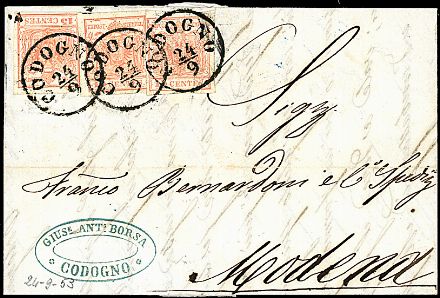 15 CENTES
CODOGNO
24/9
CODOGNO
24/9
CODOGNO
24/9
Sigg.
Franco Bernardoni e Cº Spediz
Modena
GIUSE. ANTº BORSA
CODOGNO
24-9-53